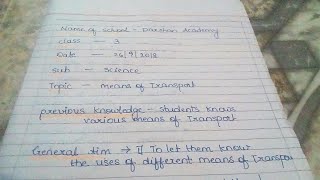 Name of School - Darshan Academy
class - 3
Date - 26/9/2018
Sub - Science
Topic - means of Transport
previous knowledge - students know
various means of Transport
General Aim → I] To let them know
the uses of different means of Transpor